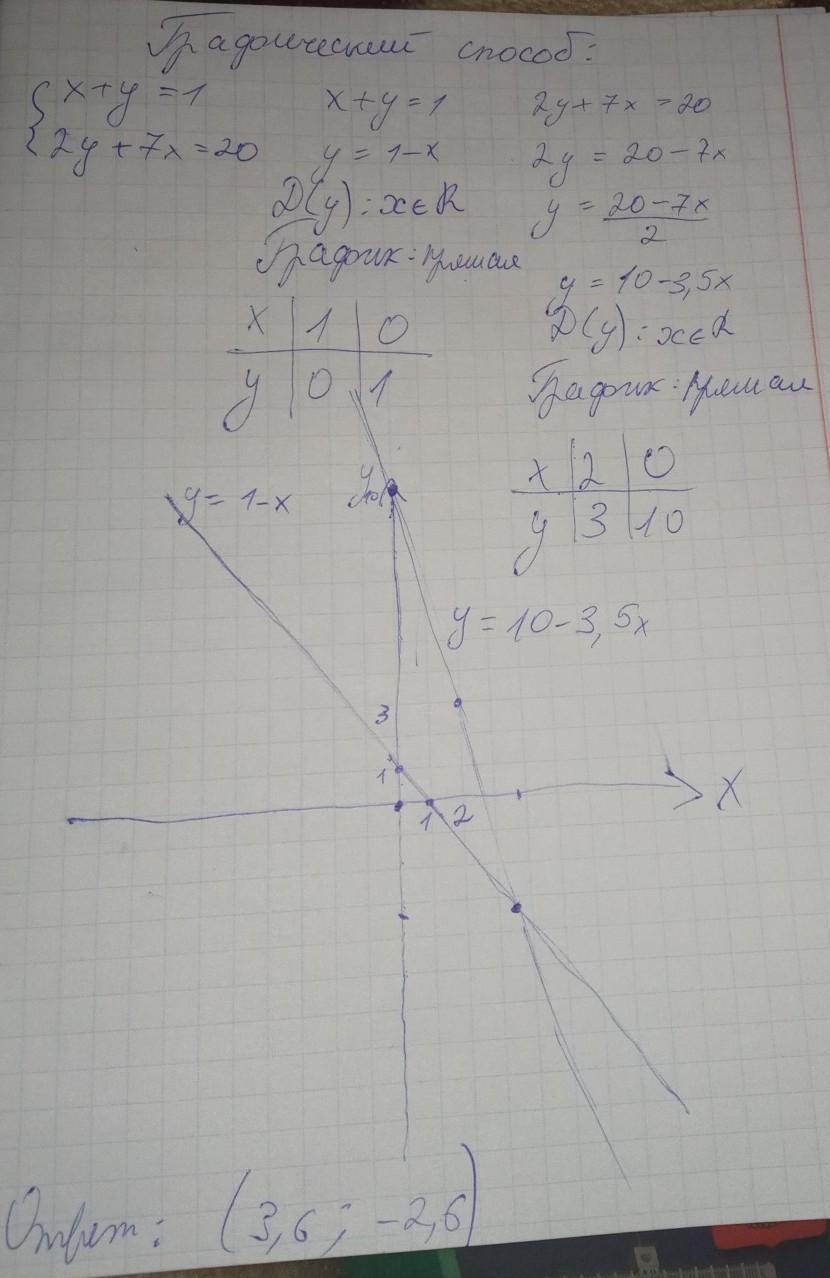 Графический способ:
x+y=1
2y+7x=20
x+y=1
y=1-x
D(y): x∈R
График: прямая
x 1 0
y 0 1
2y+7x=20
2y=20-7x
y=20-7x/2
y=10-3,5x
D(y): x∈R
График: прямая
x 2 0
y 3 10
y=1-x
y
10
y=10-3,5x
3
1
1 2
X
Ответ: (3,6; -2,6)